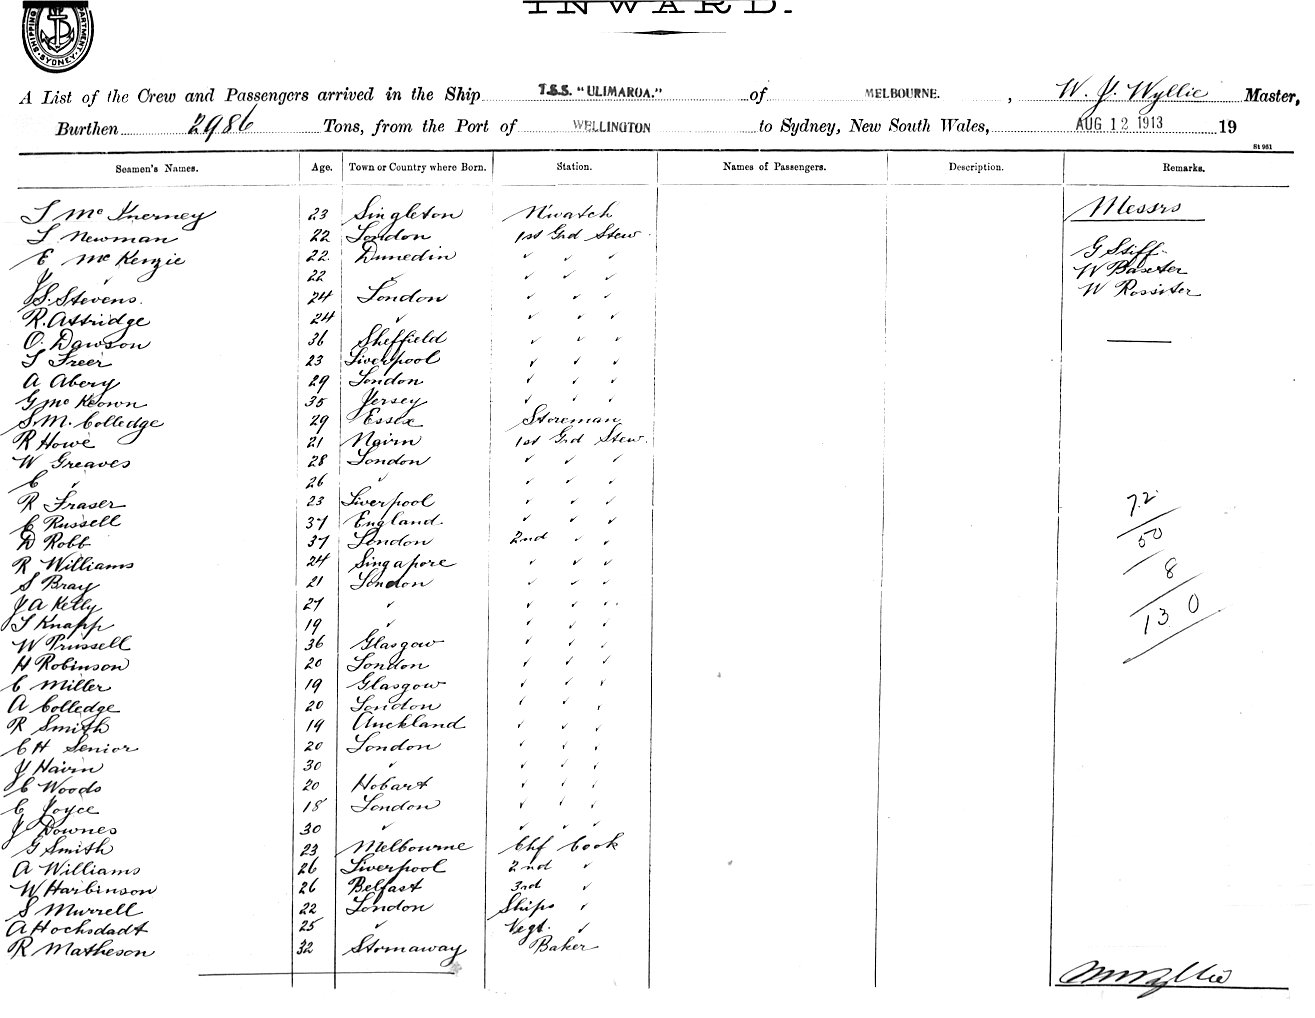 INWARD.
SHIPPING DEPARTMENT. SYDNEY
A List of the Crew and Passengers arrived in the Ship T.S.S. "ULIMAROA." of MELBOURNE. , W. J. Wyllie Master,
Burthen 2986 Tons, from the Port of WELLINGTON to Sydney, New South Wales, AUG 12 1913 19
St 961
Seamen's Names. Age. Town or Country where Born. Station. Names of Passengers. Description. Remarks.
T McInerney 23 Singleton N'watch Messrs
T Newman 22 London 1st Grd Stew.
E McKenzie 22 Dunedin ✓ ✓ ✓ G Stiff
J ✓ 22 ✓ ✓ ✓ ✓ W Baxter
J S. Stevens. 24 London ✓ ✓ ✓ W Rossiter
R. Attridge 24 ✓ ✓ ✓ ✓
O. Dawson 36 Sheffield ✓ ✓ ✓
T Freer 23 Liverpool ✓ ✓ ✓
A Abery 29 London ✓ ✓ ✓
G McKeown 35 Jersey ✓ ✓ ✓
S. M. Colledge 29 Essex Storeman
R Howe 21 Nairn 1st Grd Stew.
W Greaves 28 London ✓ ✓ ✓
C ✓ 26 ✓ ✓ ✓ ✓
R Fraser 23 Liverpool ✓ ✓ ✓ 72
C Russell 37 England ✓ ✓ ✓
D Robb 37 London 2nd ✓ ✓ 50
R Williams 24 Singapore ✓ ✓ ✓
S Bray 21 London ✓ ✓ ✓ 8
J A Kelly 27 ✓ ✓ ✓ ✓
T Knapp 19 ✓ ✓ ✓ ✓ 130
W Prussell 36 Glasgow ✓ ✓ ✓
H Robinson 20 London ✓ ✓ ✓
C Miller 19 Glasgow ✓ ✓ ✓
A Colledge 20 London ✓ ✓ ✓
R Smith 19 Auckland ✓ ✓ ✓
C H Senior 20 London ✓ ✓ ✓
J Hairn 30 ✓ ✓ ✓ ✓
C Woods 20 Hobart ✓ ✓ ✓
C Joyce 18 London ✓ ✓ ✓
J Downes 30 ✓ ✓ ✓ ✓
G Smith 23 Melbourne Chf Cook
A Williams 26 Liverpool 2nd ✓
W Harbinson 26 Belfast 3rd ✓
S Murrell 22 London Ships ✓
A Hochsdadt 25 ✓ Vegt. ✓
R Matheson 32 Stornaway Baker
W J Wyllie